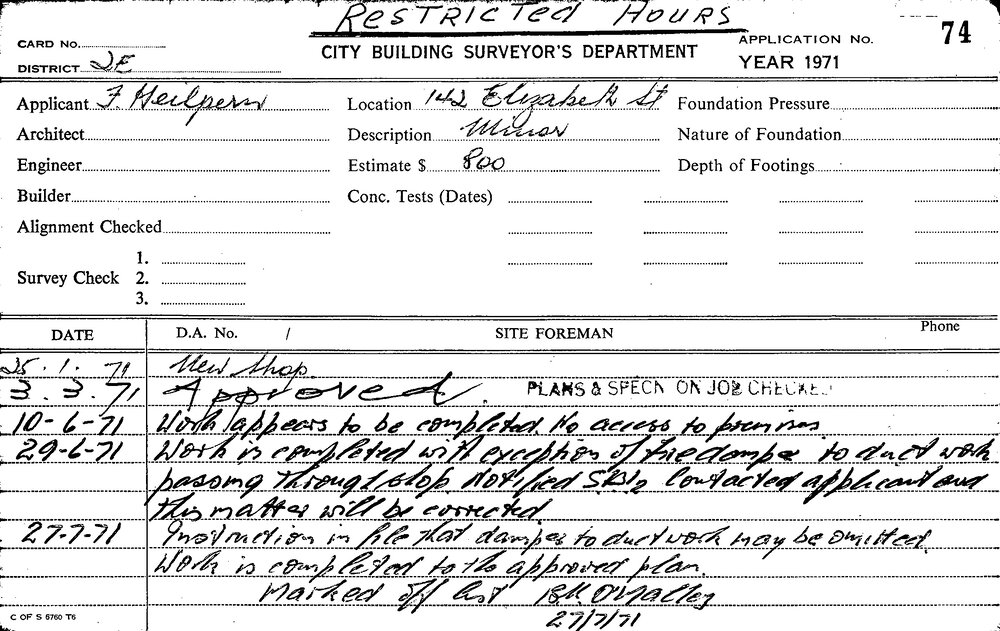 RESTRICTED HOURS
CARD No.
CITY BUILDING SURVEYOR'S DEPARTMENT
APPLICATION No. 74
DISTRICT 2E
YEAR 1971
Applicant F. Heilpern Location 142 Elizabeth St Foundation Pressure
Architect Description Minor Nature of Foundation
Engineer Estimate $ 800 Depth of Footings
Builder Conc. Tests (Dates)
Alignment Checked
1.
Survey Check 2.
3.
DATE D.A. No. / SITE FOREMAN Phone
25.1.71 New Shop.
3.3.71 Approved. PLANS & SPECN ON JOB CHECKED
10-6-71 Work appears to be completed. No access to premises
29-6-71 Work is completed with exception of firedamper to duct work
passing through shop. Notified contacted applicant and
this matter will be corrected.
27-7-71 Instruction in file that damper to duct work may be omitted.
Work is completed to the approved plan.
Marked off list O'Malley
27/7/71
C OF S 6760 T6